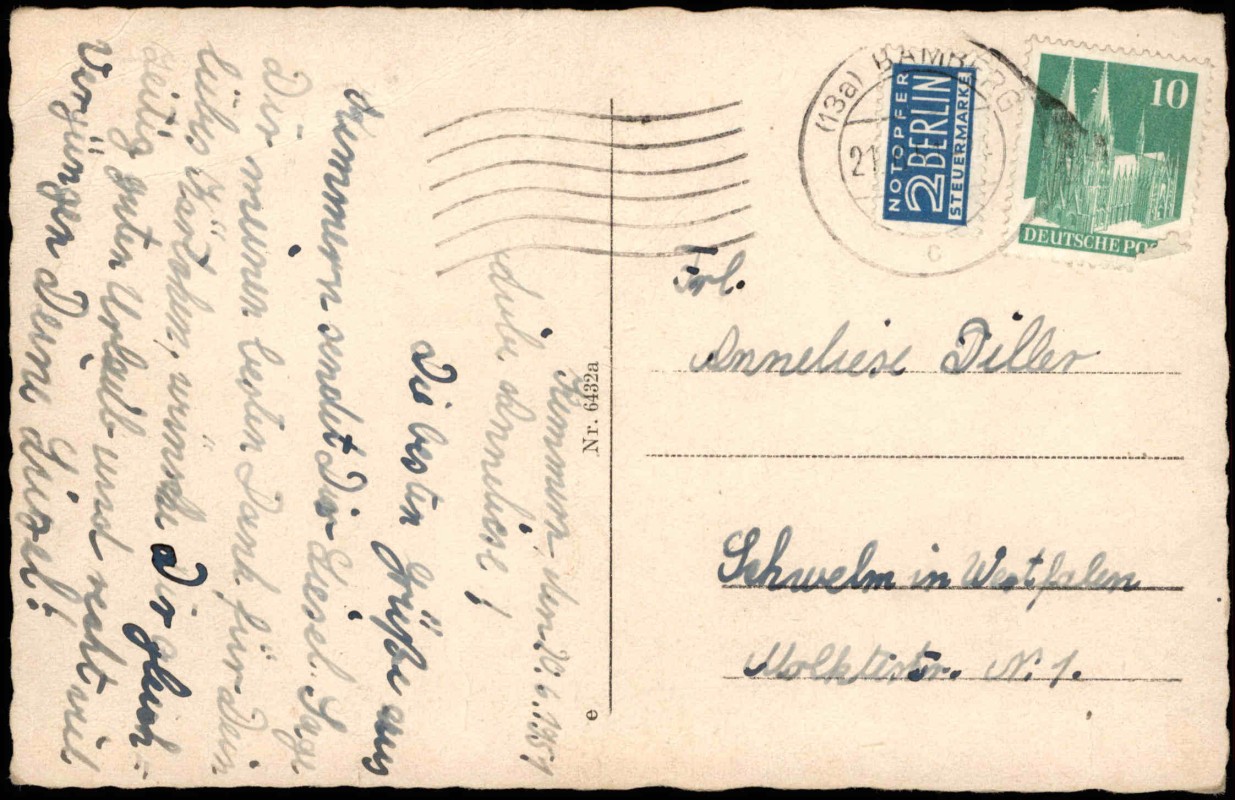 Kemmern, den 20.6.1951
Liebe Anneliese!
Die besten Grüße aus
Kemmern sendet Dir Liesel. Sage
Dir meinen besten Dank für Dein
liebs Kärtchen, wünsche Dir gleich=
zeitig guten Urlaub und recht viel
Vergnügen Deine Liesel!
Nr. 6432a
e
(13a) BAMBERG
21.
c
NOTOPFER
2 BERLIN
STEUERMARKE
10
DEUTSCHE PO
Frl.
Anneliese Diller
Schwelm in Westfalen
Molktestr. N. 1.